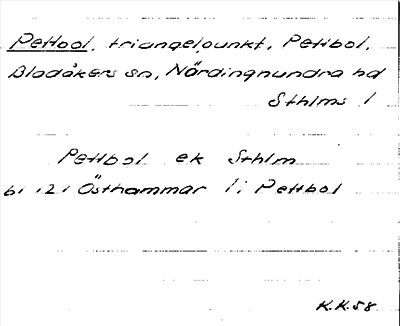 Pettbol, triangelpunkt, Pettbol,
Bladåkers sn, Närdinghundra hd
Sthlms l
Pettbol ek Sthlm
bl 121 Östhammar l; Pettbol
K.K.58